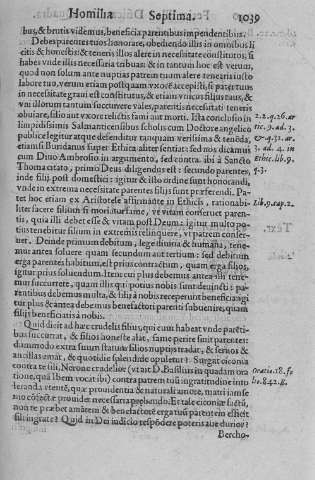 Homilia Septima. 1039
bus, & brutis videmus, beneficia parentibus impendentibus.
Debes parentes tuos honorare, obediendo illis in omnibus li
citis & honestis: & teneris illos alere in necessitate constitutos, si
habes vnde illis necessaria tribuas: & in tantum hoc est verum,
quod non solum ante nuptias patrem tuum alere tenearis iusto
labore tuo, verum etiam postquam vxorẽ accepisti, si pater tuus
in necessitate graui est constitutus, & etiam vnicus filius tuus, &
vni illorum tantum succurrere vales, parentis necessitati teneris
obuiare, filio aut vxore relictis fami aut morti. Ista conclusio in
limpidissimis Salmanticensibus scholis cum Doctore angelico
publice legitur atque defenditur tanquam verissima & tenẽda,
etiamsi Buridanus super Ethica aliter sentiat: sed mos ducamus
cum Diuo Ambrosio in argumento, sed contra. ibi à Sancto
Thoma citato, primò Deus diligendus est: secundo parentes,
inde filij, post domestici: igitur & isto ordine sunt honorandi,
vnde in extrema necessitate parentes filijs sunt præferendi. Pa-
tet hoc etiam ex Aristotele affirmante in Ethicis, rationabi-
liter facere filium si moriatur fame, vt vitam conseruet paren-
tis, quia illi debet esse & vitam post Deum: igitur multo po-
tius tenebitur filium in extremis relinquere, vt patrem conser-
uet. Deinde primum debitum, lege diuina & humana, tene-
mur antea soluere quam secundum aut tertium: sed debitum
erga parentes habitum, est prius contractum, quam erga filios,
igitur prius soluendum. Item cui plus debemus antea illi tene-
mur succurrere, quam illis qui potius nobis sunt deuincti: pa-
rentibus debemus multa, & filij à nobis receperunt beneficia: igi
tur plus & antea debemus benefactori parienti subuenire, quam
filijs beneficiatis à nobis.
Quid dicit ad hæc crudelis filius, qui cum habeat vnde parẽti-
bus succurrat, & filios honeste alat, fame perire sinit parentes:
dummodo extra suum statum filios nuptui tradat, & seruos &
ancillas emat, & quotidie splendide epuletur? Surgat ciconia
contra te illi, Nerone crudelior (vt ait D. Basilius in quadam ora
tione, quã lbem vocat ibi) contra patrem tuũ ingratitudine into
leranda vtentẽ, quæ prouidentia & naturali amore, matri iam se
nio cõfectæ prouidet necessaria præbendo: Et tale ciconiæ factũ,
non te præbet amãtem & benefactorẽ erga tuũ parentem efficit
sed ingrate? Quid in Dei iudicio respõdere poteris auæ durior?
Bercho-
2.2.q.26.ar
tic.9.ad.3.
& q.31.ar.
3.ad.4. in
Ethic.lib.9.
q.3.
Lib.9.cap.2.
Oratio.18.fo
lio.842.8.